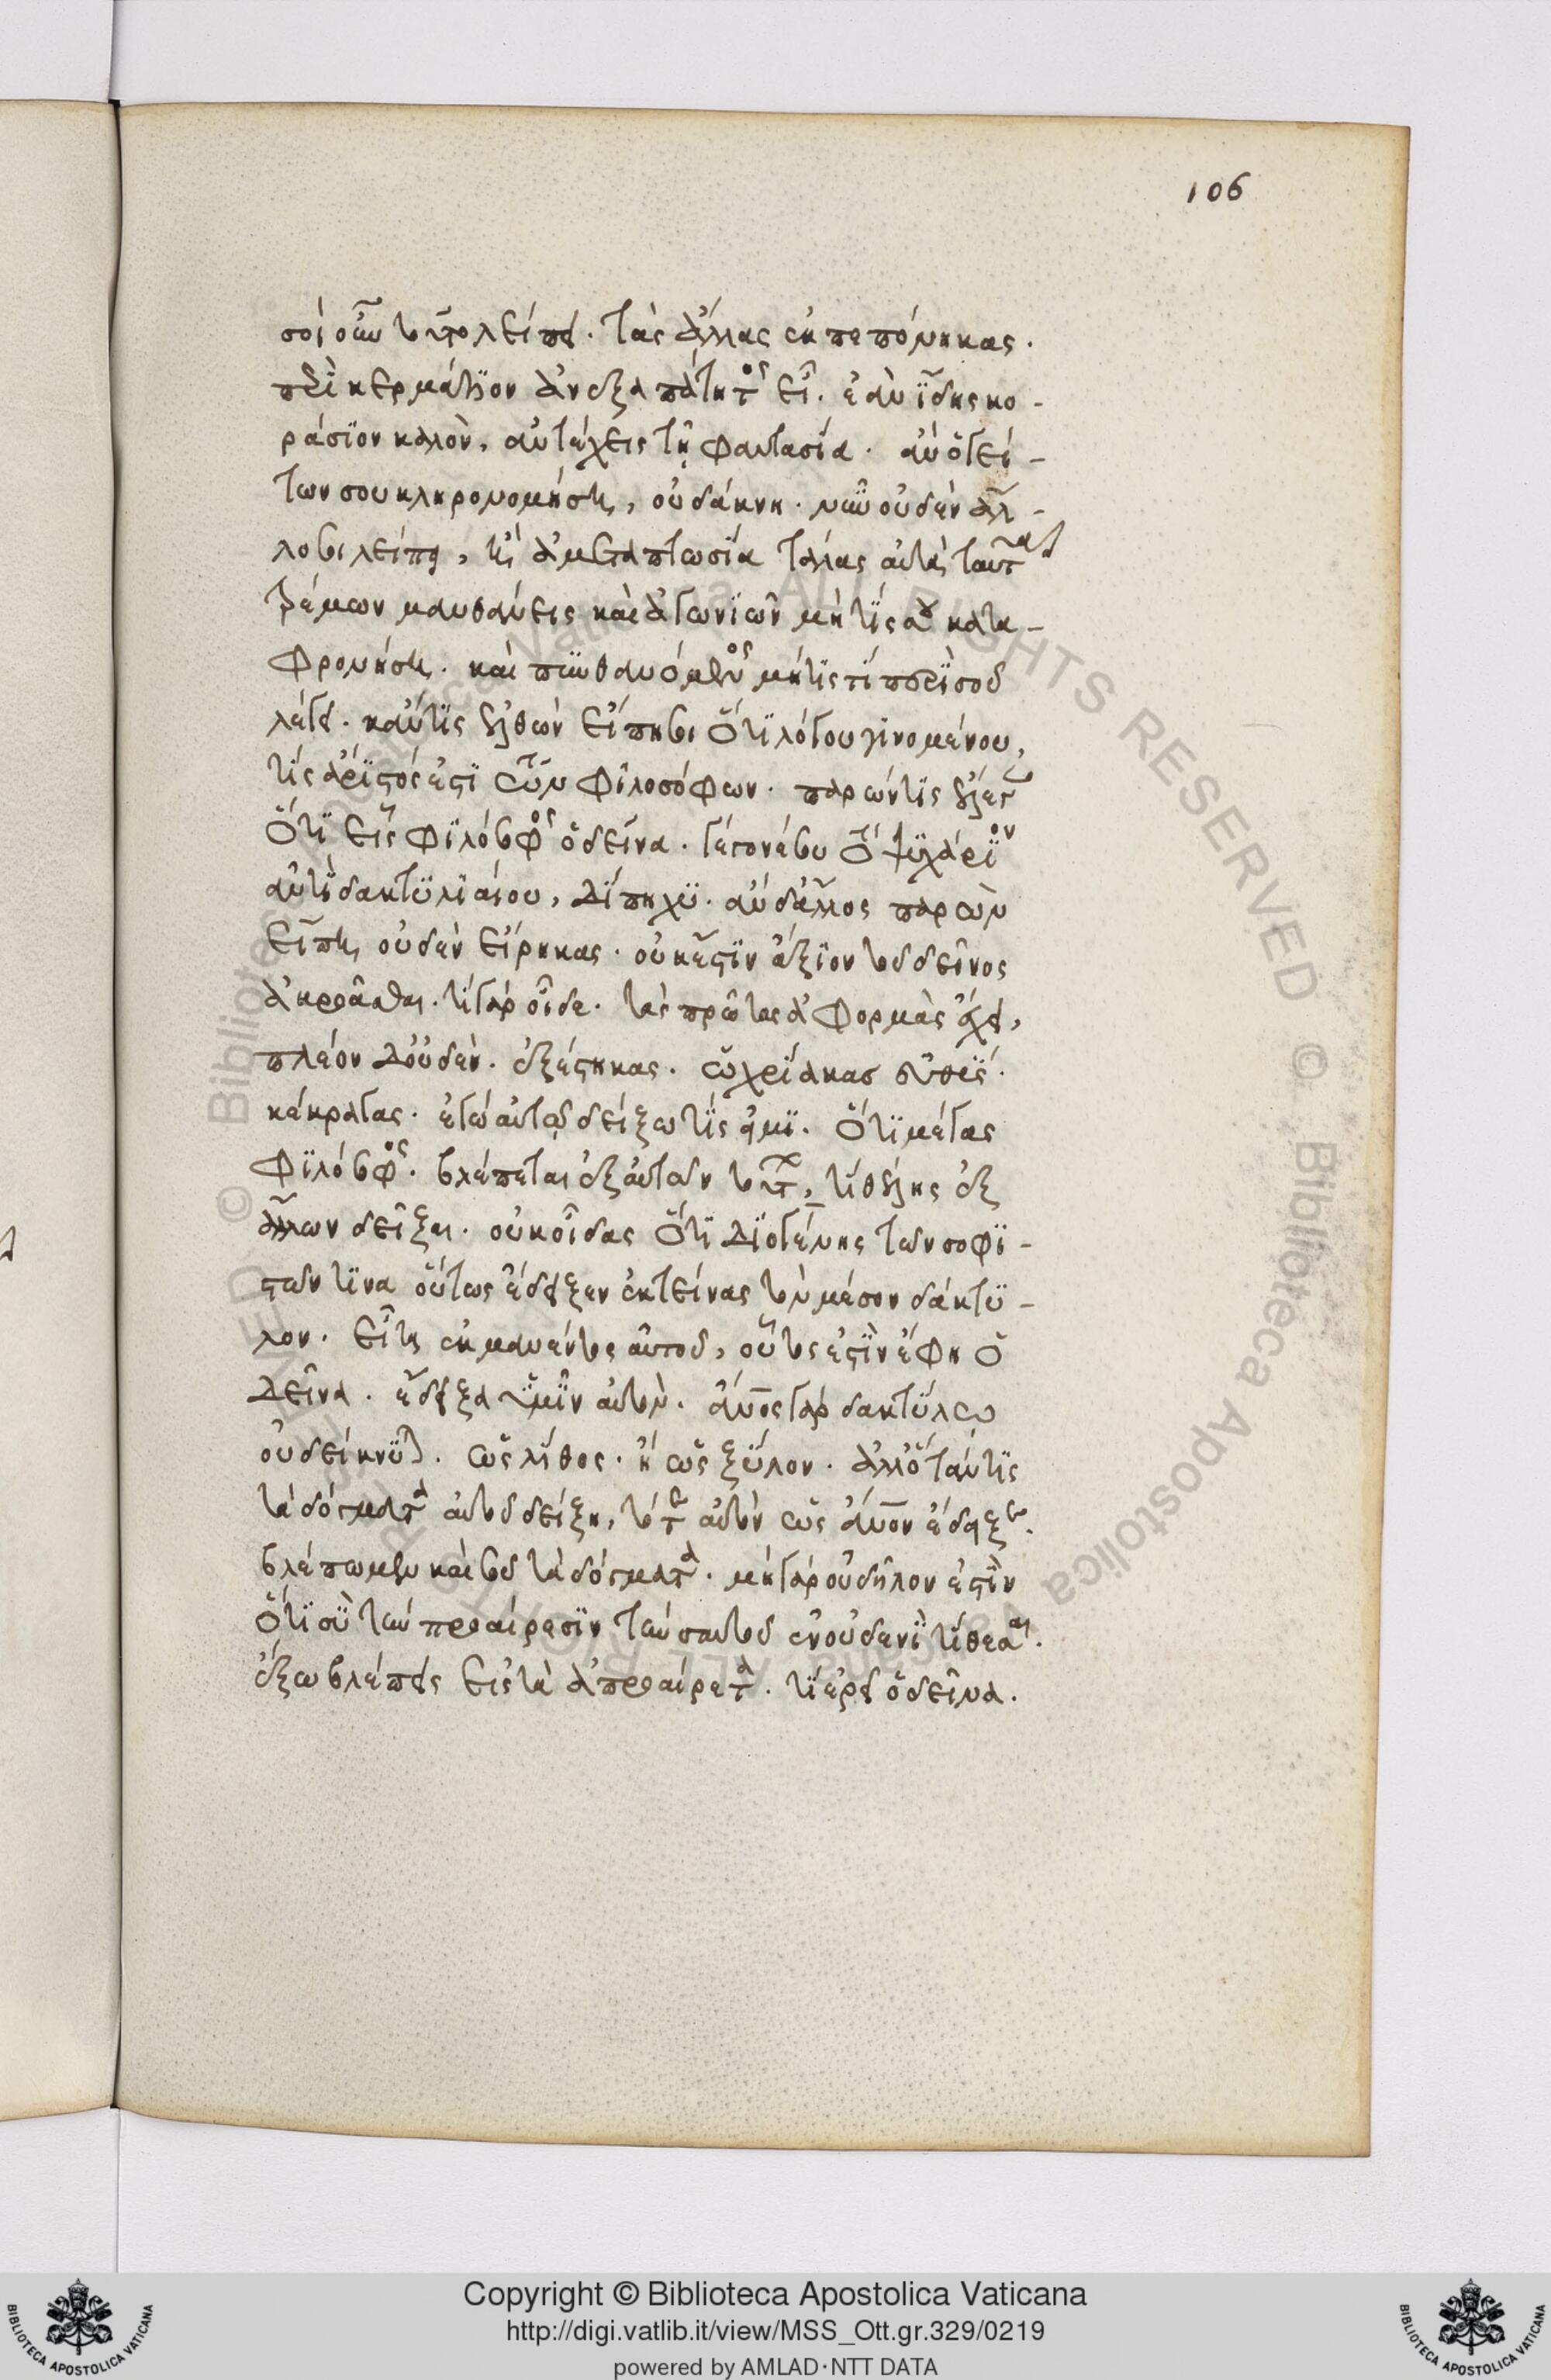 σοί οὖν τοῦτο λείπει. τὰς ἄλλας ἐκπεπόνηκας.
περὶ κερμάτιον ἀνεξαπάτητος εἶ. ἐὰν ἴδης κο-
ράσιον καλὸν, ἀντέχεις τῇ φαντασία. ἀν ὁ γεί-
των σου κληρονομήση, οὐ δάκνη. νῦν οὐδὲν ἄλ-
λο σοι λείπει, ἢ ἀμεταπτωσία τάλας αὐτὰ ταῦτα
τρέμων μανθάνεις καὶ ἀγωνιῶν μή τίς σου κατα-
φρονήση. καὶ πυνθανόμενος μή τίς τί περὶ σοῦ
λέγει. κἄν τις ἐλθὼν εἴπη σοι ὅτι λόγου γινομένου,
τίς ἄριστός ἐστι τῶν φιλοσόφων. παρών τις ἔλεγεν
ὅτι εἷς φιλόσοφος ὁ δεῖνα. γέγονέ σου τὸ ψυχάριον
ἀντὶ δακτυλιαίου, δίπηχυ. ἀν δ' ἄλλος παρὼν
εἴπη, οὐδὲν εἴρηκας. οὐκ ἔστιν ἄξιον τοῦ δεῖνος
ἀκροᾶσθαι. τί γὰρ οἶδε. τὰς πρώτας ἀφορμὰς ἔχει,
πλέον δ' οὐδὲν. ἐξέστηκας. ὠχρίακας εὐθύς.
κέκραγας. ἐγὼ αὐτῷ δείξω τίς εἰμι. ὅτι μέγας
φιλόσοφος. βλέπεται ἐξ αὐτῶν τούτων, τί θέλης ἐξ
ἄλλων δεῖξαι. οὐκ οἶδας ὅτι Διογένης τῶν σοφι-
στῶν τινα οὕτως ἔδειξεν ἐκτείνας τὸν μέσον δάκτυ-
λον. εἶτα ἐκμανέντος αὐτοῦ, οὗτος ἐστὶν ἔφη ὁ
δεῖνα. ἔδειξα ὑμῖν αὐτὸν. ἄνος γὰρ δακτύλω
οὐ δείκνυται. ὡς λίθος. ἢ ὡς ξύλον. ἀλλ' ὅταν τις
τὰ δόγματα αὐτοῦ δείξη, τότε αὐτὸν ὡς ἄνον ἔδειξεν.
βλέπωμεν καὶ σοῦ τὰ δόγματα. μὴ γὰρ οὐ δῆλον ἐστὶν
ὅτι σὺ τὴν προαίρεσιν τὴν σαυτοῦ ἐν οὐδενὶ τίθεσαι.
ἔξω βλέπεις εἰς τὰ ἀπροαίρετα. τί ἐρεῖ ὁ δεῖνα.
106
© Biblioteca Apostolica Vaticana ALL RIGHTS RESERVED © Biblioteca Apostolica Vaticana ALL RIGHTS RESERVED
BIBLIOTECA APOSTOLICA VATICANA
Copyright © Biblioteca Apostolica Vaticana
http://digi.vatlib.it/view/MSS_Ott.gr.329/0219
powered by AMLAD·NTT DATA
BIBLIOTECA APOSTOLICA VATICANA